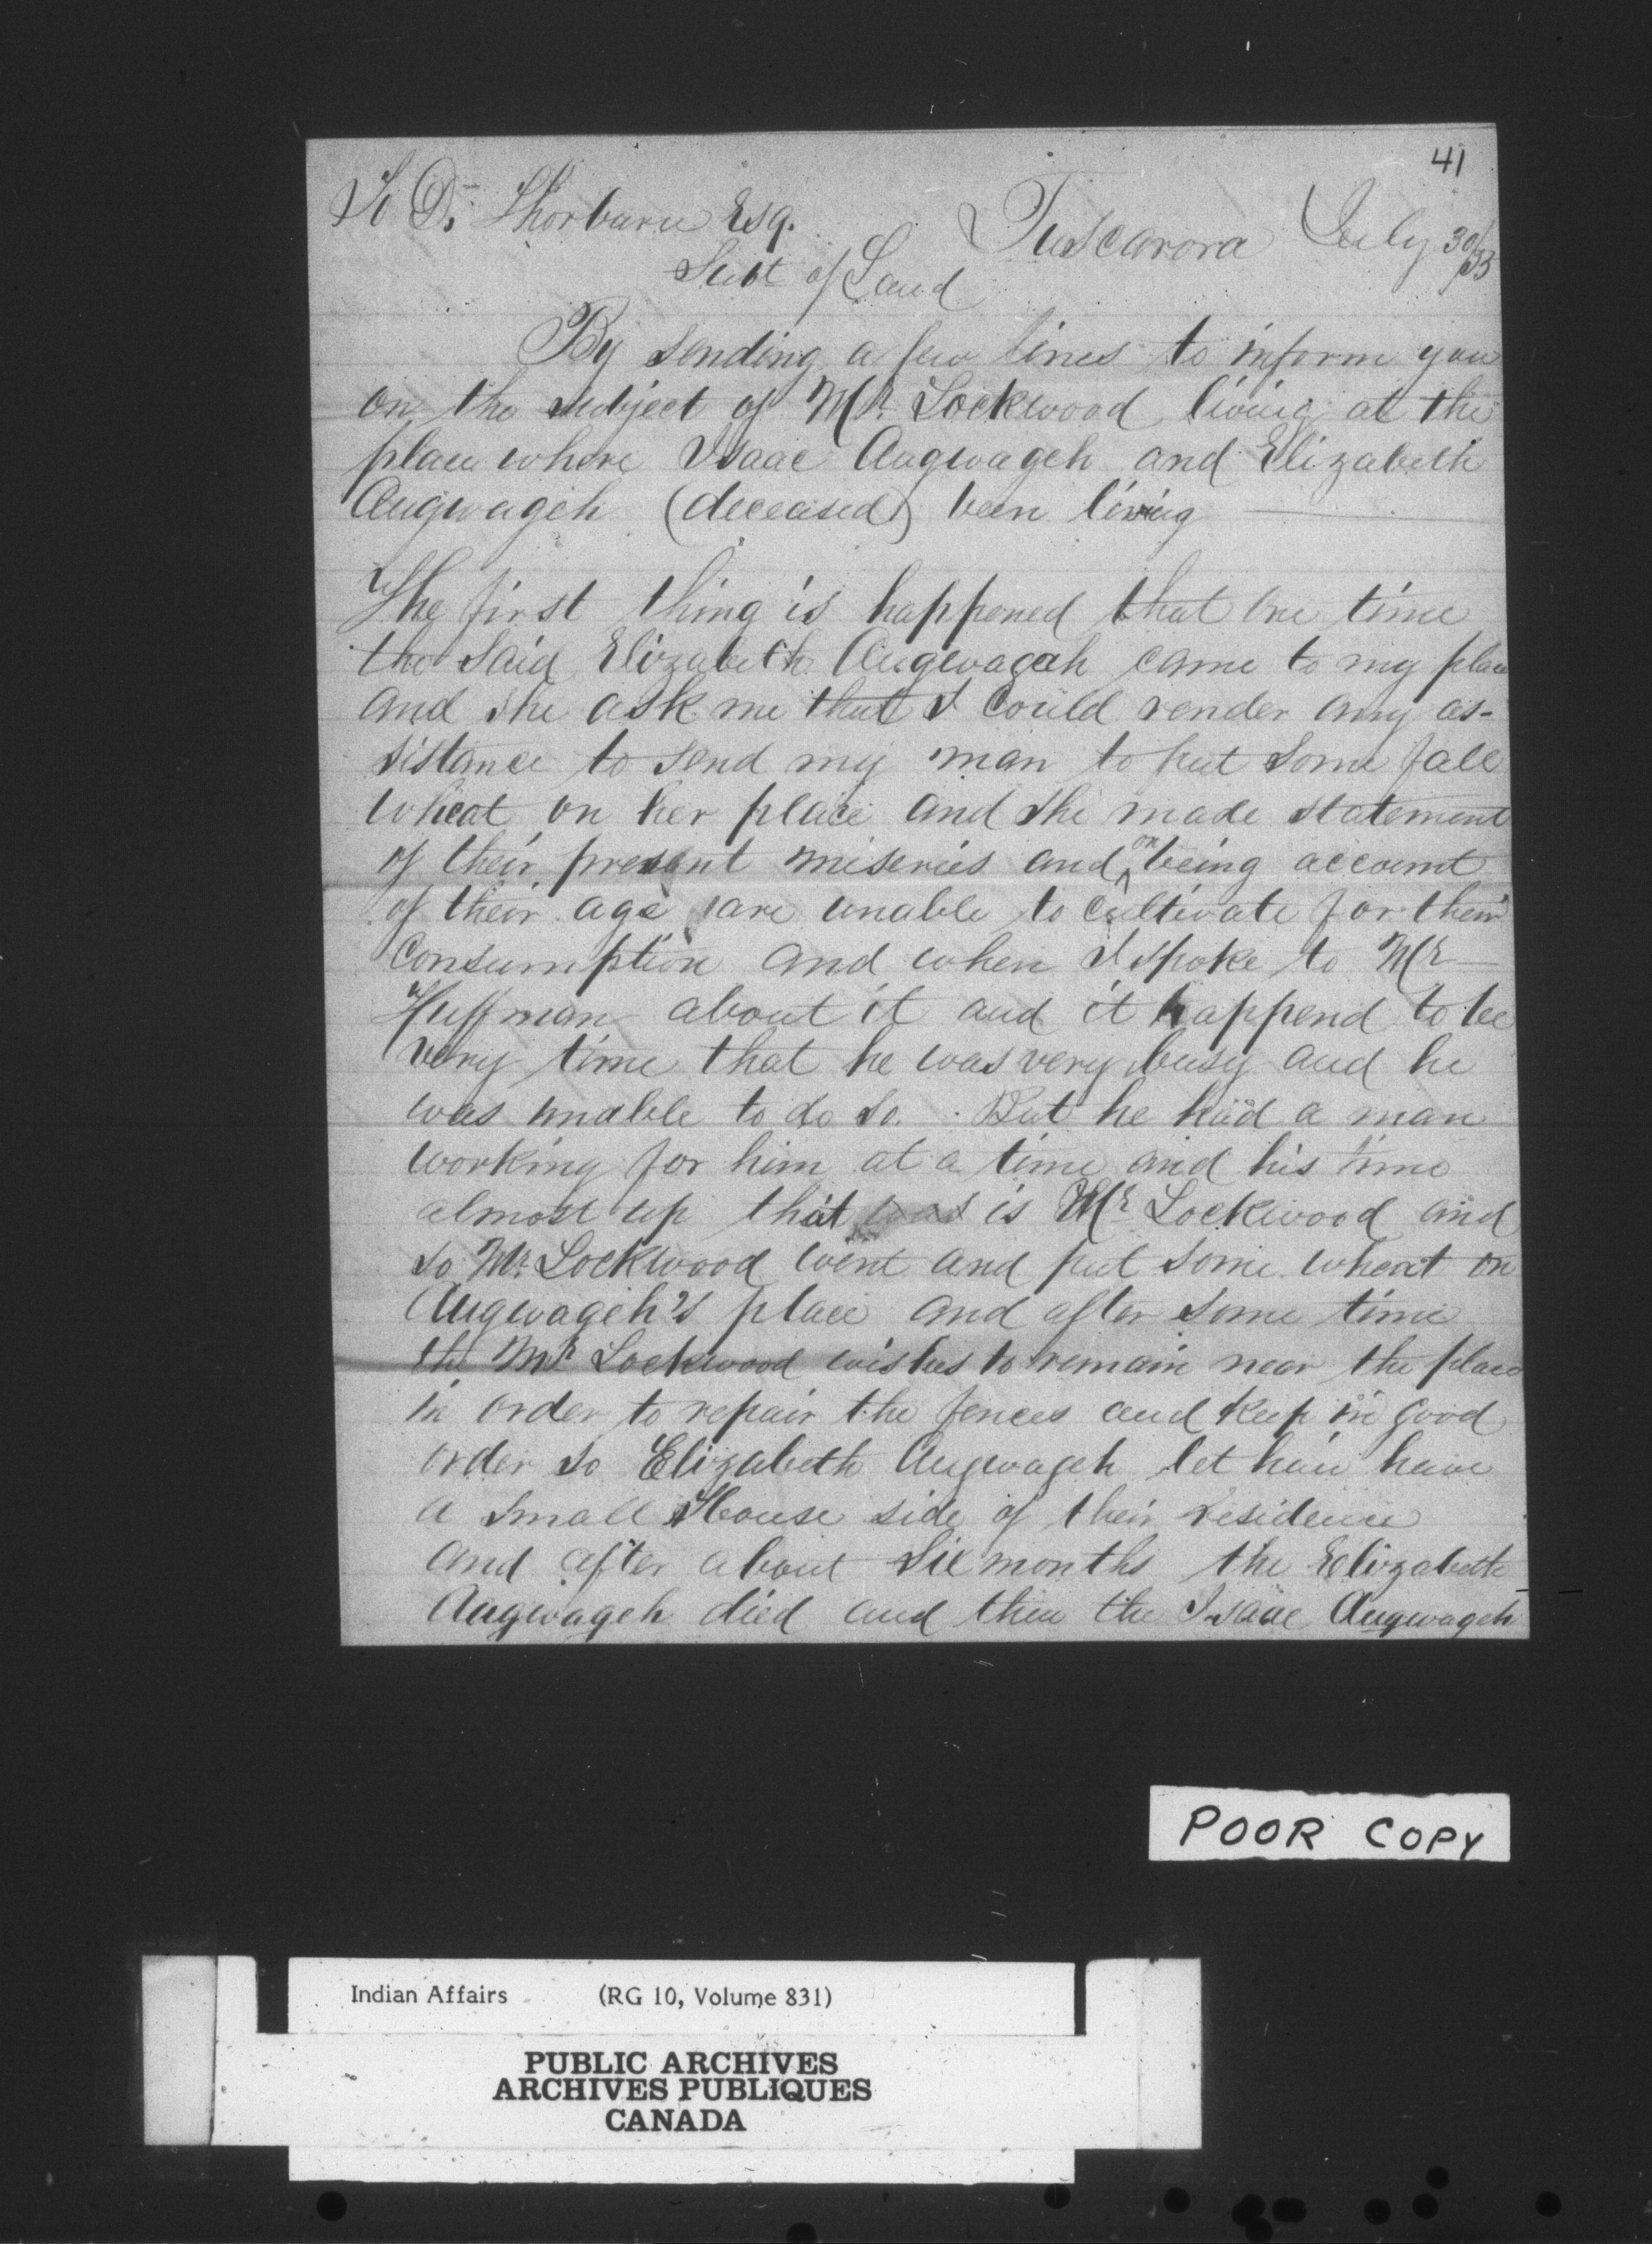 41
To D. Thorburn Esq.
Tuscarora July 30/53
Supt of Land
By sending a few lines to inform you
on the subject of Mr. Lockwood living at the
place where Isaac Augwageh and Elizabeth
Augwageh (deceased) been living
The first thing is happened that one time
the said Elizabeth Augwageh came to my place
and she ask me that I could render any as-
sistance to send my man to put some fall
wheat on her place and she made statement
of their present miseries and on being account
of their age are unable to cultivate for their
consumption and when I spoke to Mr
Huffman about it and it happend to be
very time that he was very busy and he
was unable to do so. But he had a man
working for him at a time and his time
almost up that is Mr Lockwood and
so Mr. Lockwood went and put some wheat on
Augwageh's place and after some time
the Mr Lockwood wishes to remain near the place
in order to repair the fences and keep in good
order so Elizabeth Augwageh let him have
a small House side of their residence
and after about six months the Elizabeth
Augwageh died and then the Isaac Augwageh
POOR COPY
Indian Affairs (RG 10, Volume 831)
PUBLIC ARCHIVES
ARCHIVES PUBLIQUES
CANADA